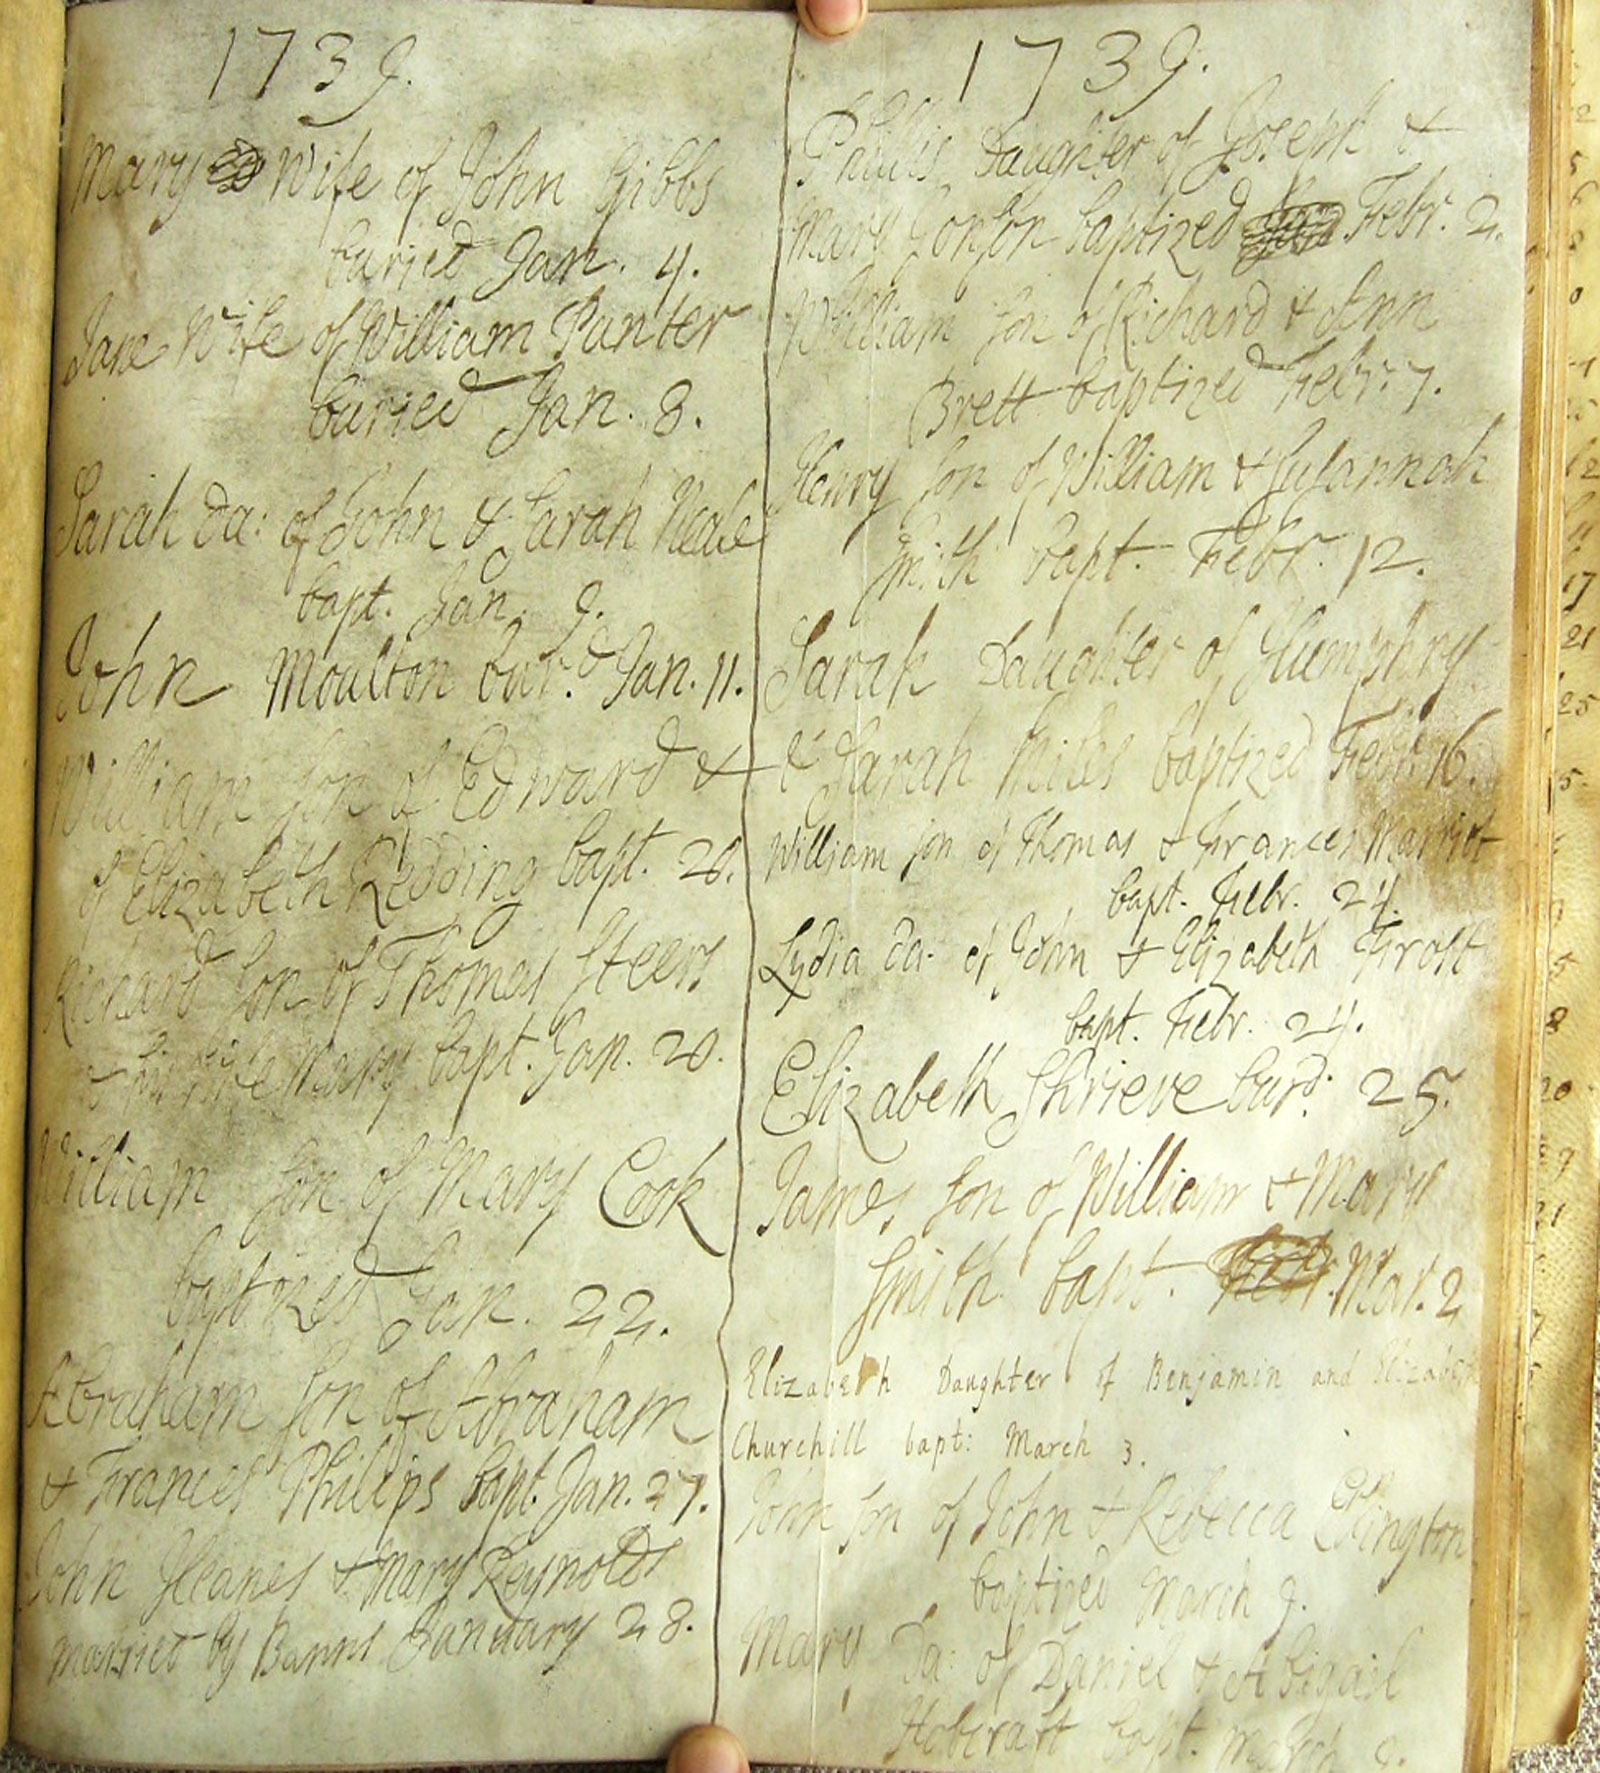 1739.
Mary Wife of John Gibbs
buried Jan. 4.
Jane Wife of William Panter
buried Jan. 8.
Sarah Da: of John & Sarah Neale
bapt. Jan. 9.
John Moulton bur.d Jan. 11.
William Son of Edward &
of Elizabeth Redding bapt. 20.
Richard Son of Thomas Steers
& his Wife Mary bapt. Jan. 20.
William Son of Mary Cook
baptized Jan. 22.
Abraham Son of Abraham
& Frances Philips bapt. Jan. 27.
John Heanes & Mary Reynolds
married by Banns January 28.
1739.
Phillis Daughter of Joseph &
Mary Jonson baptized Febr. 2.
William Son of Richard & Ann
Brett baptized Febr. 7.
Henry Son of William & Susannah
Smith bapt. Febr. 12.
Sarah Daughter of Humphry
& Sarah Miles baptized Febr. 16.
William son of Thomas & Frances Marriot
bapt. Febr. 24.
Lydia da. of John & Elizabeth Frost
bapt. Febr. 24.
Elizabeth Shrieve burd: 25.
James Son of William & Mary
Smith bapt. Mar. 2
Elizabeth Daughter of Benjamin and Elizabeth
Churchill bapt: March 3.
John Son of John & Rebecca Ekington
baptized March 9.
Mary Da: of Daniel & Abigail
Hobcraft bapt. March 9.